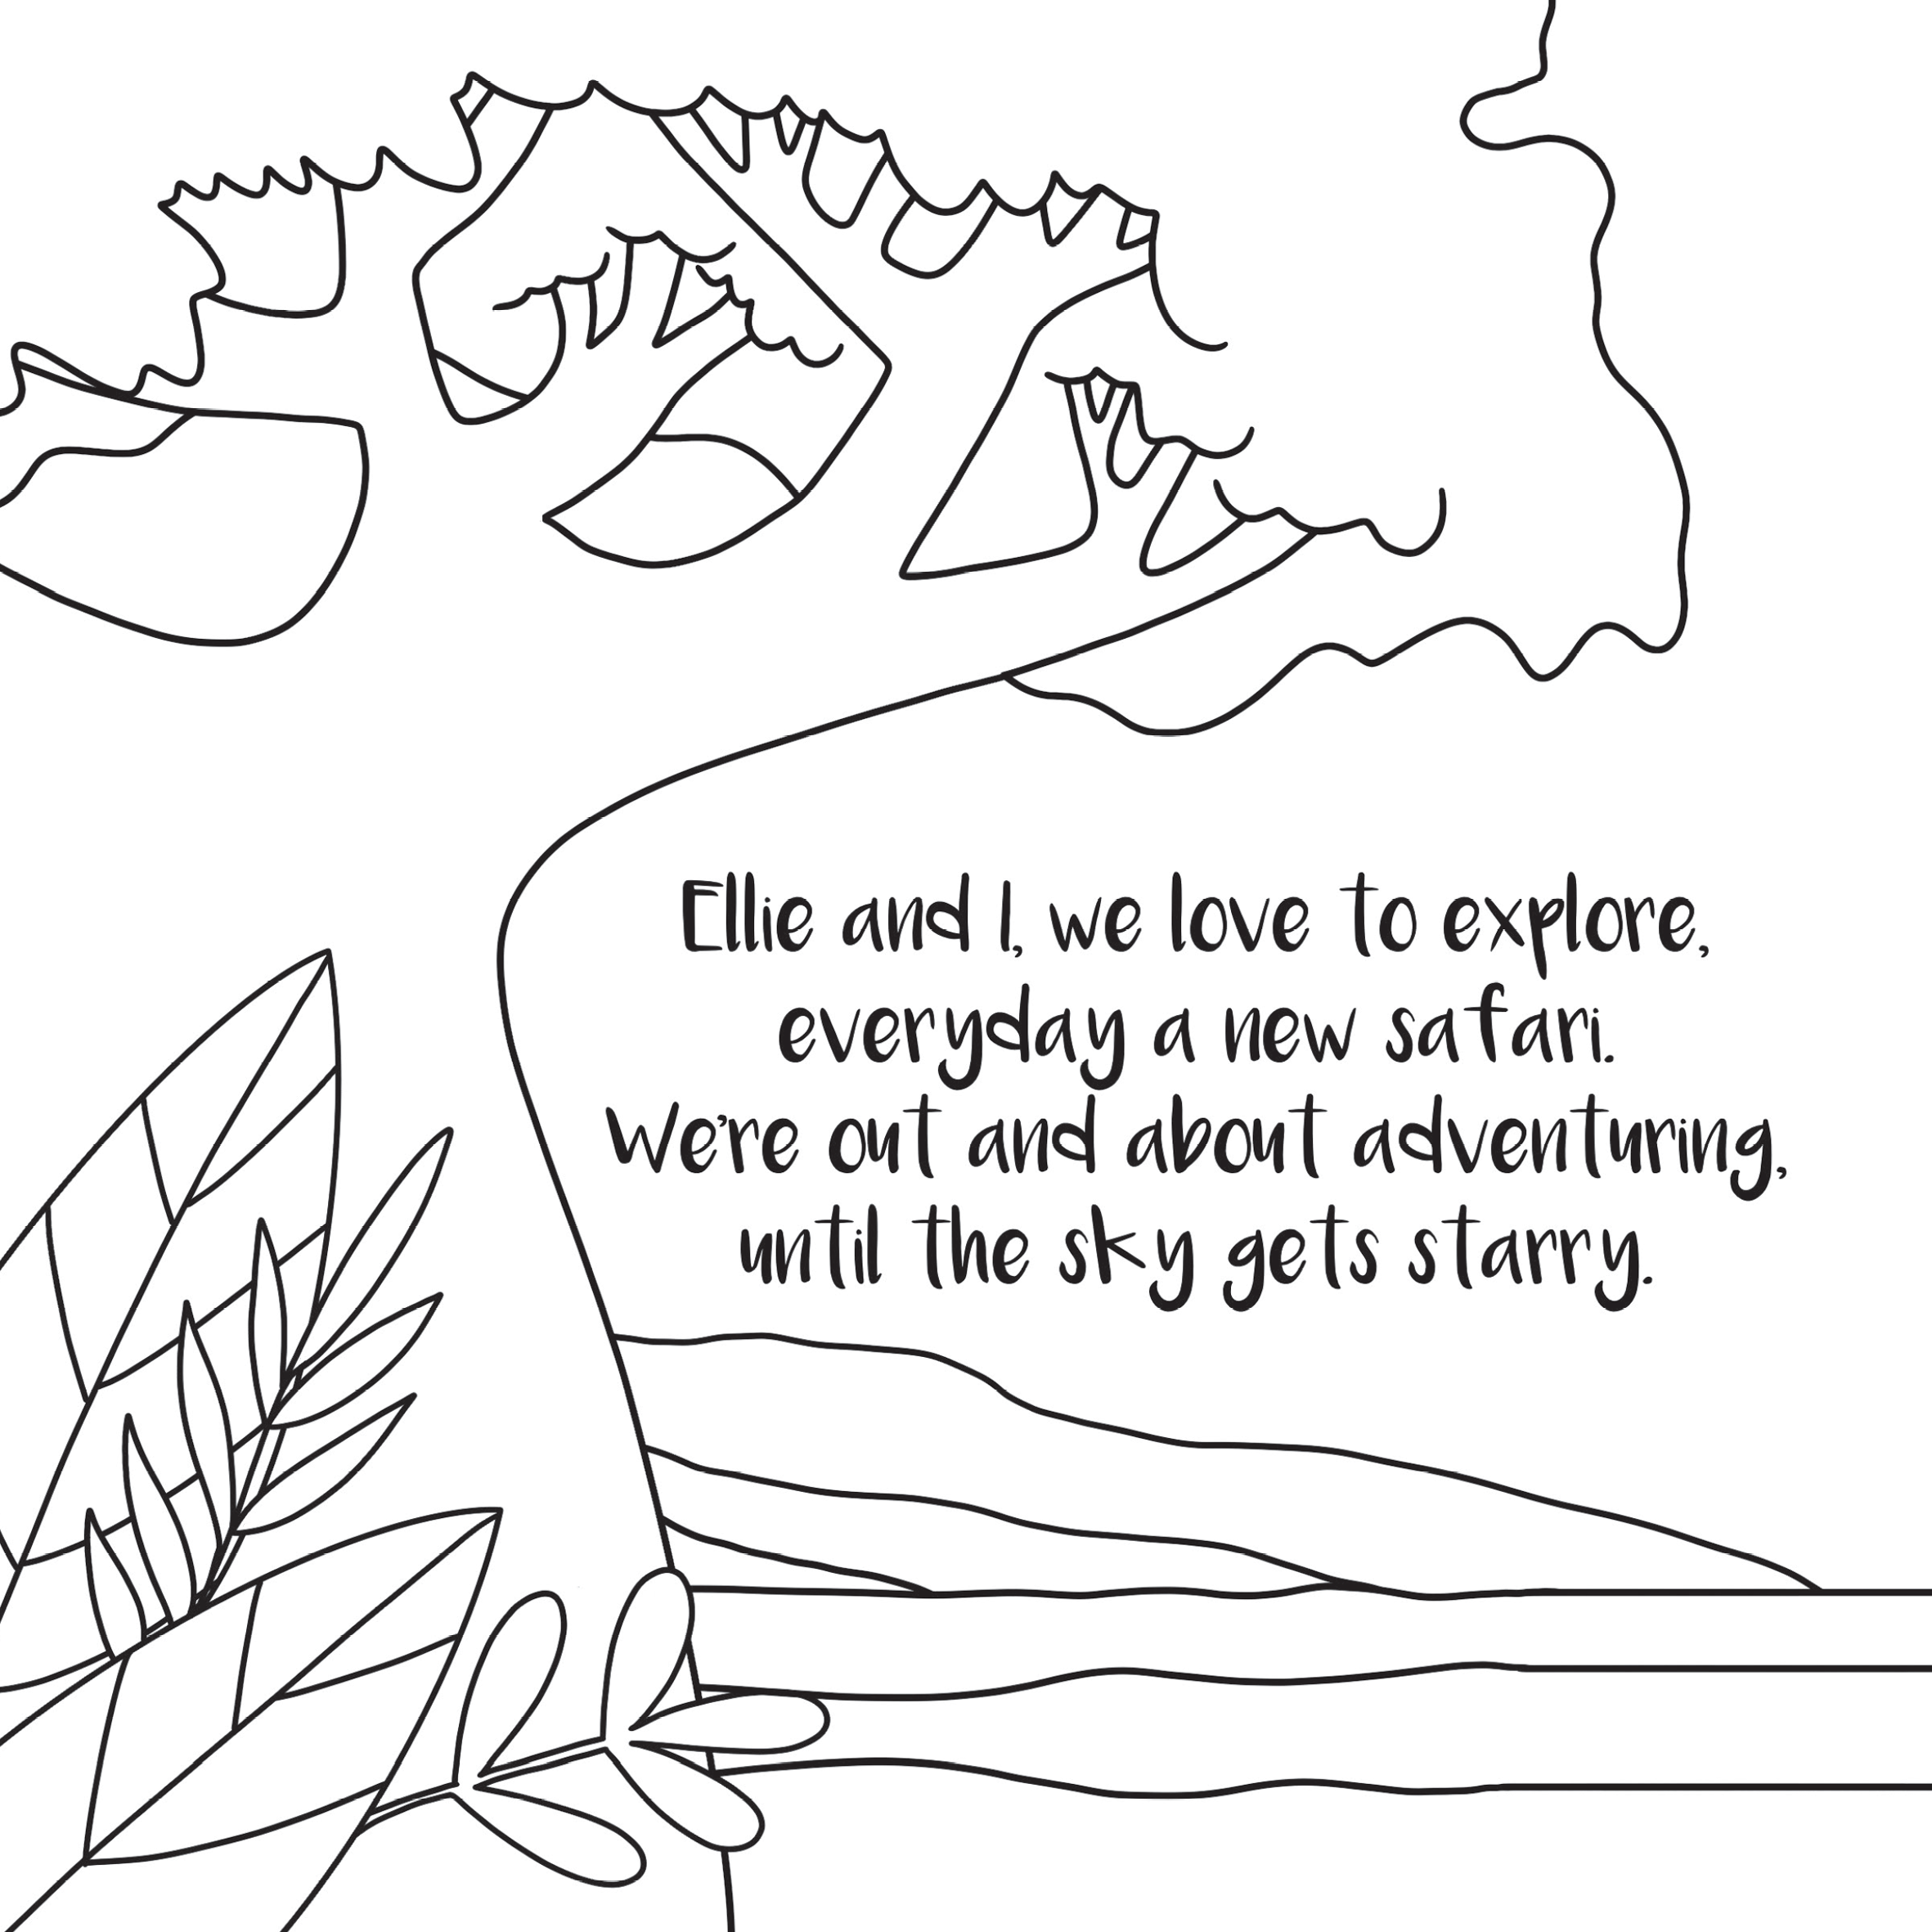 Ellie and I, we love to explore,
everyday a new safari.
We're out and about adventuring,
until the sky gets starry.